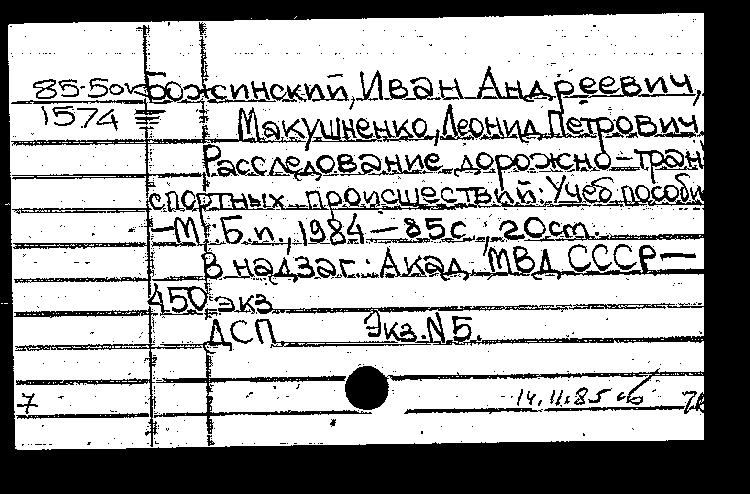 85-5ок Божинский, Иван Андреевич,
1574 Макушненко, Леонид Петрович.
Расследование дорожно-тран
спортных происшествий: Учеб пособи
-М.: Б.п., 1984 — 85с., 20 см.
В надзаг.: Акад. МВД СССР —
450 экз
ДСП. Экз. N 5.
7 14.11.85